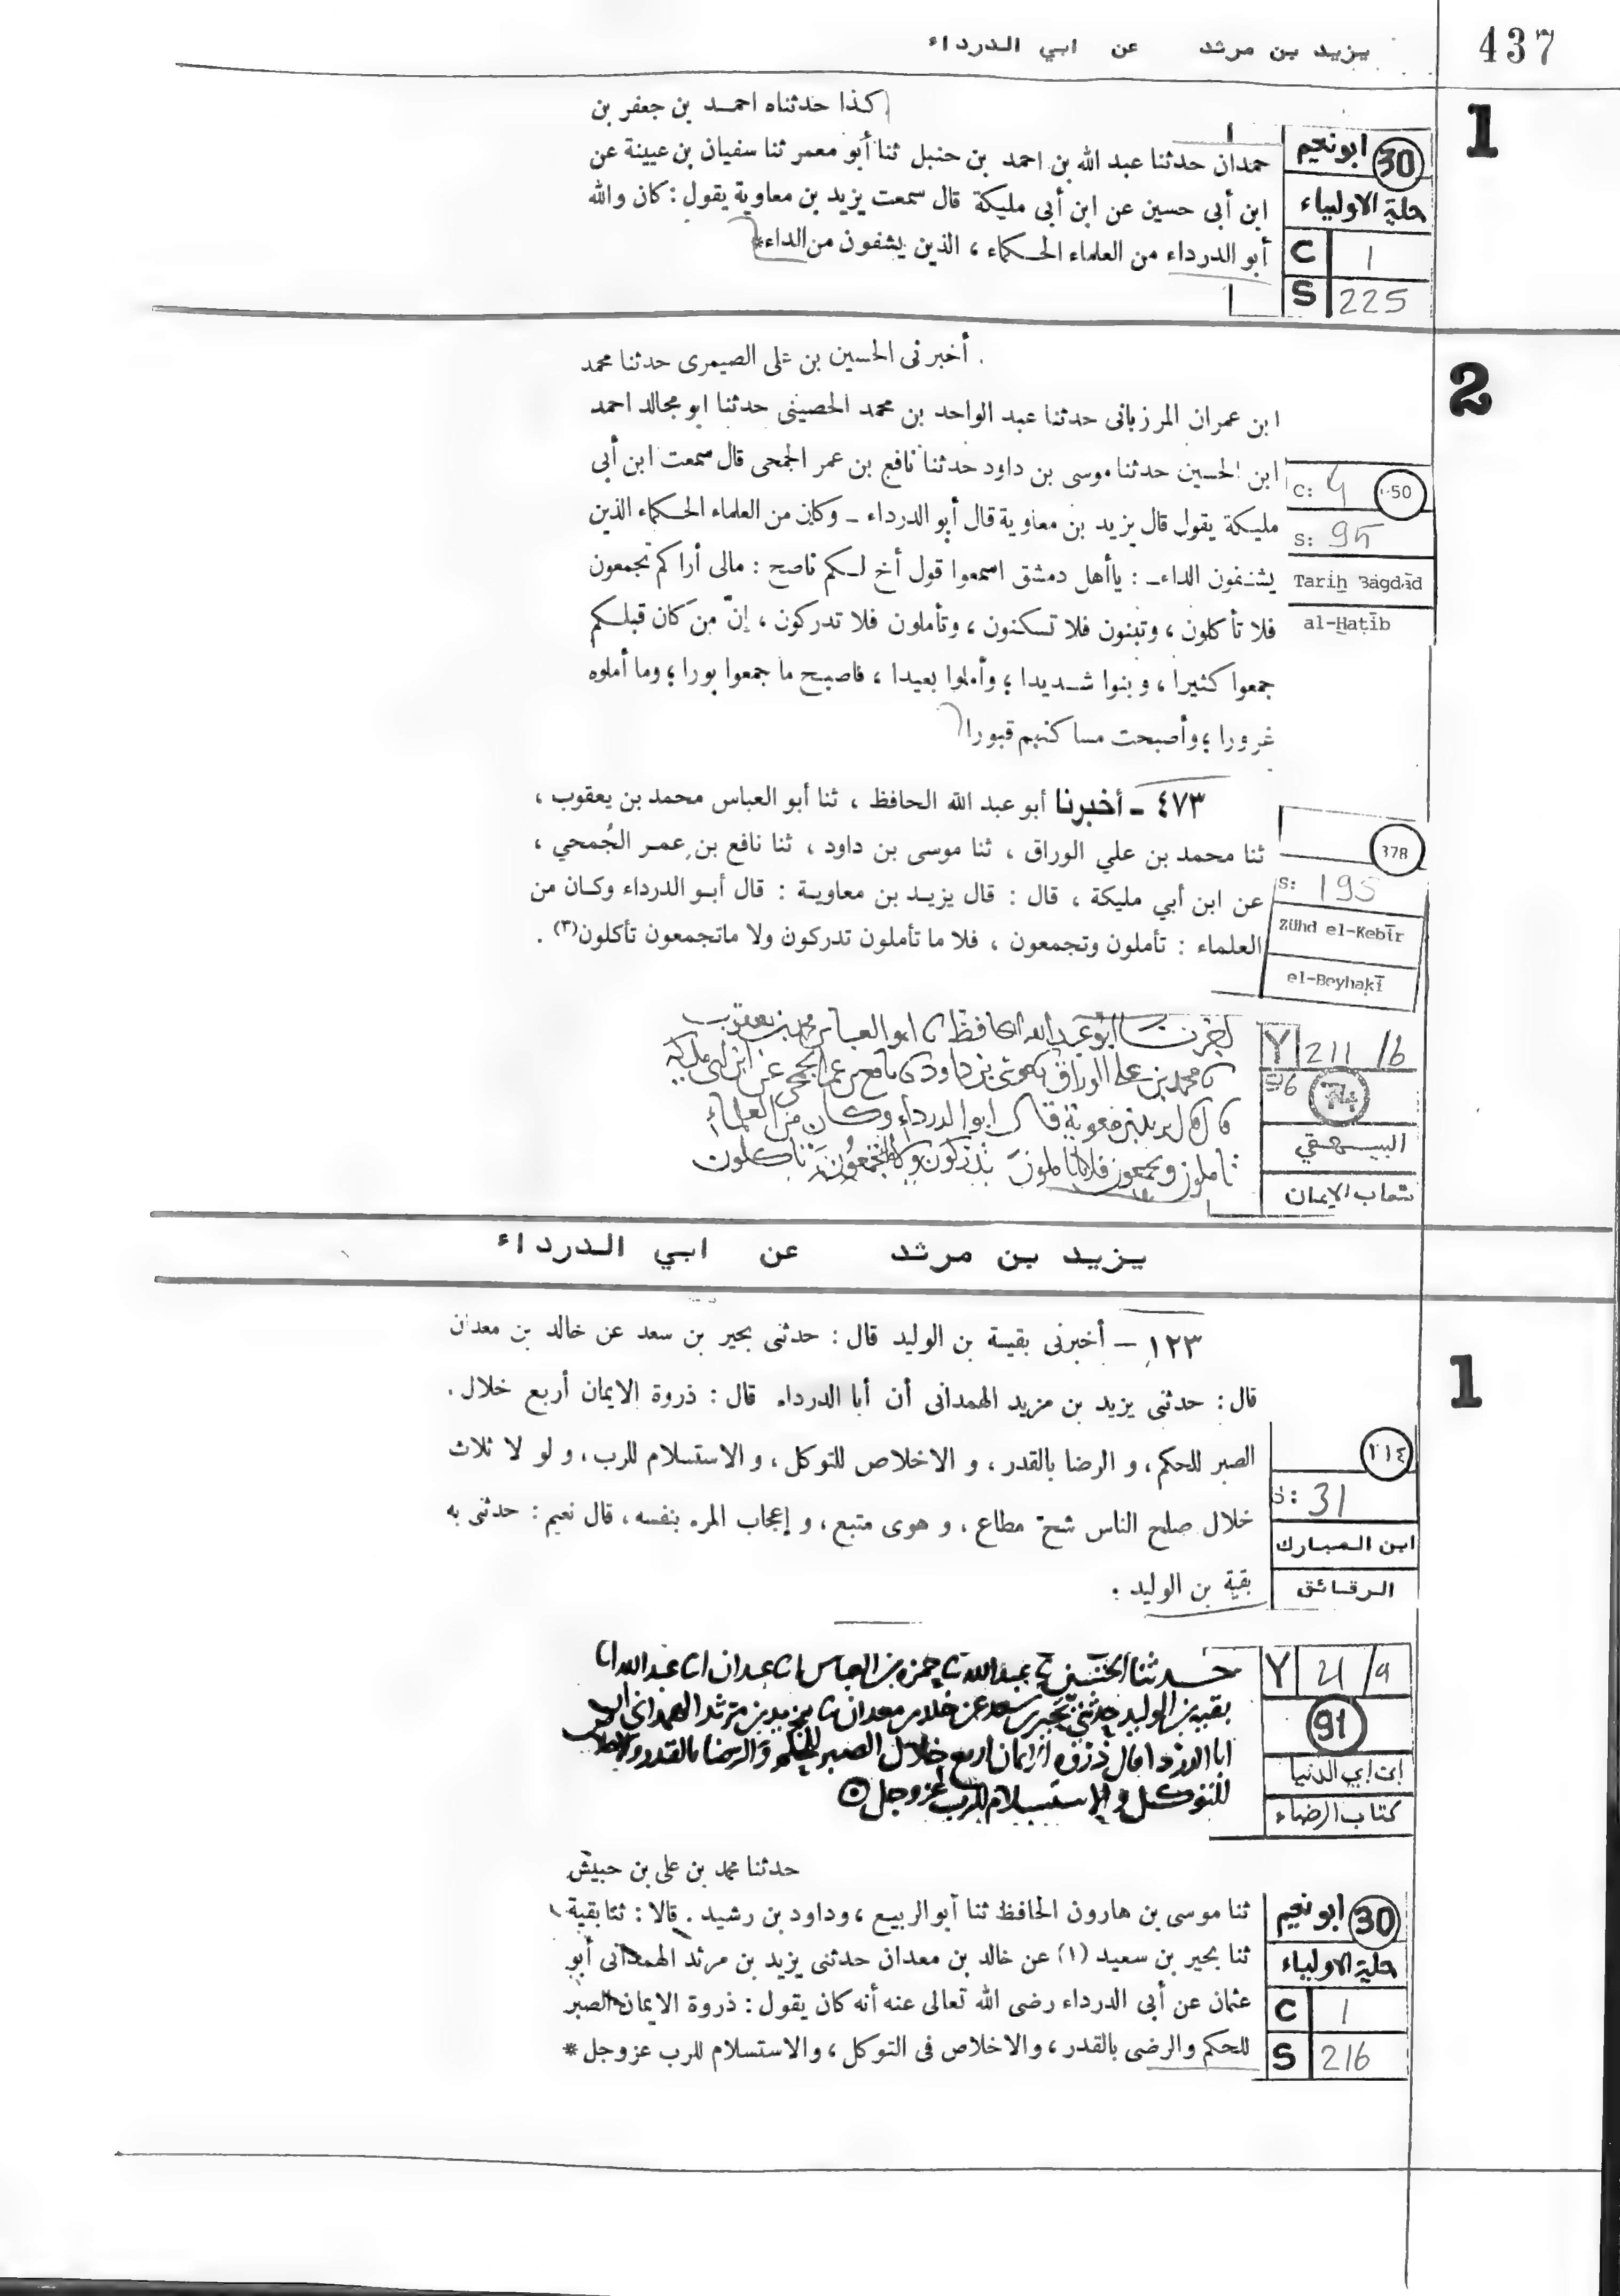 437
يزيد بن مرثد عن ابي الدرداء
1
كذا حدثناه احمد بن جعفر بن
حمدان حدثنا عبد الله بن احمد بن حنبل ثنا أبو معمر ثنا سفيان بن عيينة عن
ابن أبى حسين عن ابن أبى مليكة قال سمعت يزيد بن معاوية يقول : كان والله
أبو الدرداء من العلماء الحكماء ، الذين يشفون من الداء*
30 ابو نعيم
حلية الاولياء
C 1
S 225
2
أخبرنى الحسين بن على الصيمرى حدثنا محمد
ابن عمران المرزبانى حدثنا عبد الواحد بن محمد الحصينى حدثنا ابو مجالد احمد
ابن الحسين حدثنا موسى بن داود حدثنا نافع بن عمر الجمحى قال سمعت ابن أبى
مليكة يقول قال يزيد بن معاوية قال أبو الدرداء ـ وكان من العلماء الحكماء الذين
يشفون الداء ـ : ياأهل دمشق اسمعوا قول أخ لكم ناصح : مالى أراكم تجمعون
فلا تأكلون ، وتبنون فلا تسكنون ، وتأملون فلا تدركون ، إنّ مَن كان قبلكم
جمعوا كثيرا ، وبنوا شديدا ؛ وأملوا بعيدا ، فاصبح ما جمعوا بورا ؛ وما أملوه
غرورا ؛ وأصبحت مساكنهم قبورا
C: 4 50
S: 95
Tariḫ Bagdād
al-Ḫaṭīb
٤٧٣ ـ أخبرنا أبو عبد الله الحافظ ، ثنا أبو العباس محمد بن يعقوب ،
ثنا محمد بن علي الوراق ، ثنا موسى بن داود ، ثنا نافع بن عمر الجُمحي ،
عن ابن أبي مليكة ، قال : قال يزيد بن معاوية : قال أبو الدرداء وكان من
العلماء : تأملون وتجمعون ، فلا ما تأملون تدركون ولا ماتجمعون تأكلون(٣) .
378
S: 195
Zühd el-Kebīr
el-Beyhaḳī
اخبرنا ابو عبد الله الحافظ نا ابو العباس محمد بن يعقوب
نا محمد بن علي الوراق نا موسى بن داود نا نافع بن عمر الجمحي عن ابن ابي مليكة
قال قال يزيد بن معوية قال ابو الدرداء وكان من العلماء
تاملون وتجمعون فلا ما تاملون تدركون ولا ما تجمعون تاكلون
Y 211/b
74
البيهقي
شعاب الايمان
يزيد بن مرثد عن ابي الدرداء
1
١٢٣ – أخبرنى بقية بن الوليد قال : حدثنى بحير بن سعد عن خالد بن معدان
قال : حدثنى يزيد بن مزيد الهمدانى أن أبا الدرداء قال : ذروة الايمان أربع خلال .
الصبر للحكم ، و الرضا بالقدر ، و الاخلاص للتوكل ، و الاستسلام للرب ، و لو لا ثلاث
خلال صلح الناس شحّ مطاع ، و هوى متبع ، و إعجاب المرء بنفسه ، قال نعيم : حدثنى به
بقية بن الوليد :
٢١٤
S: 31
ابن المبارك
الرقائق
حدثنا الحسين نا عبد الله نا حمزة بن العباس انا عبدان انا عبد الله انا
بقية بن الوليد حدثني بحير بن سعد عن خالد بن معدان نا يزيد بن مرثد الهمداني ان
ابا الدردا قال ذروة الايمان اربع خلال الصبر للحكم والرضا بالقدر والاخلاص
للتوكل والاستسلام للرب عز وجل
Y 21/9
91
ابن ابي الدنيا
كتاب الرضاء
حدثنا محمد بن على بن حبيش
ثنا موسى بن هارون الحافظ ثنا أبو الربيع ، وداود بن رشيد . قالا : ثنا بقية
ثنا بحير بن سعيد (١) عن خالد بن معدان حدثنى يزيد بن مرثد الهمدانى أبو
عثمان عن أبى الدرداء رضى الله تعالى عنه أنه كان يقول : ذروة الايمان الصبر
للحكم والرضى بالقدر ، والاخلاص فى التوكل ، والاستسلام للرب عز وجل *
30 ابو نعيم
حلية الاولياء
C 1
S 216